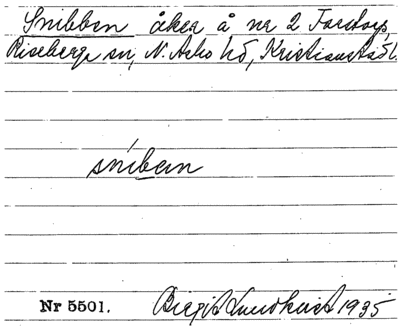 Snibben åker å nr 2 Farstorp,
Riseberga sn, N. Åsbo hd, Kristianstads l.
snibɐn
Nr 5501. Birgit Lundkvist 1935